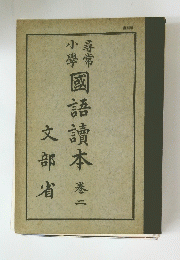 尋常
小學
國語讀本 巻二
文部省